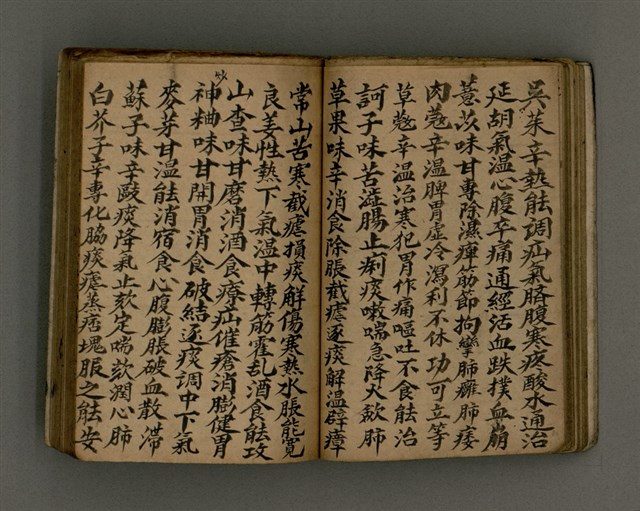 吳茱辛熱能調疝氣臍腹寒疼酸水通治
延胡氣温心腹卒痛通經活血跌撲血崩
薏苡味甘專除濕痺筋節拘攣肺癰肺痿
肉蔻辛温脾胃虛冷瀉利不休功可立等
草蔻辛温治寒犯胃作痛嘔吐不食能治
訶子味苦澁腸止痢痰嗽喘急降火歛肺
草果味辛消食除脹截瘧逐痰解温辟瘴
常山苦寒截瘧損痰解傷寒熱水脹能寬
良姜性熱下氣温中轉筋霍乱酒食能攻
山查味甘磨消酒食療疝催瘡消膨健胃
神麯味甘開胃消食破結逐痰調中下氣
麥芽甘温能消宿食心腹膨脹破血散滯
蘇子味辛敺痰降氣止欬定喘欬潤心肺
白芥子辛專化脇痰瘧蒸痞塊服之能安